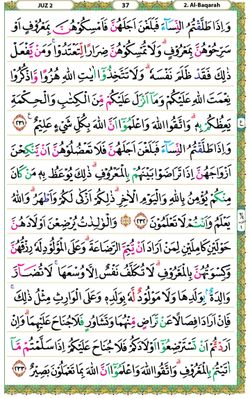 JUZ 2 37 2. Al-Baqarah
وَاِذَا طَلَّقْتُمُ النِّسَآءَ فَبَلَغْنَ اَجَلَهُنَّ فَاَمْسِكُوْهُنَّ بِمَعْرُوْفٍ اَوْ
سَرِّحُوْهُنَّ بِمَعْرُوْفٍ وَلَا تُمْسِكُوْهُنَّ ضِرَارًا لِّتَعْتَدُوْا وَمَنْ يَّفْعَلْ
ذٰلِكَ فَقَدْ ظَلَمَ نَفْسَهٗ وَلَا تَتَّخِذُوْٓا اٰيٰتِ اللّٰهِ هُزُوًا وَّاذْكُرُوْا
نِعْمَتَ اللّٰهِ عَلَيْكُمْ وَمَآ اَنْزَلَ عَلَيْكُمْ مِّنَ الْكِتٰبِ وَالْحِكْمَةِ
يَعِظُكُمْ بِهٖ وَاتَّقُوا اللّٰهَ وَاعْلَمُوْٓا اَنَّ اللّٰهَ بِكُلِّ شَيْءٍ عَلِيْمٌ ﴿٢٣١﴾
وَاِذَا طَلَّقْتُمُ النِّسَآءَ فَبَلَغْنَ اَجَلَهُنَّ فَلَا تَعْضُلُوْهُنَّ اَنْ يَّنْكِحْنَ
اَزْوَاجَهُنَّ اِذَا تَرَاضَوْا بَيْنَهُمْ بِالْمَعْرُوْفِ ذٰلِكَ يُوْعَظُ بِهٖ مَنْ كَانَ
مِنْكُمْ يُؤْمِنُ بِاللّٰهِ وَالْيَوْمِ الْاٰخِرِ ذٰلِكُمْ اَزْكٰى لَكُمْ وَاَطْهَرُ وَاللّٰهُ
يَعْلَمُ وَاَنْتُمْ لَا تَعْلَمُوْنَ ﴿٢٣٢﴾ وَالْوٰلِدٰتُ يُرْضِعْنَ اَوْلَادَهُنَّ
حَوْلَيْنِ كَامِلَيْنِ لِمَنْ اَرَادَ اَنْ يُّتِمَّ الرَّضَاعَةَ وَعَلَى الْمَوْلُوْدِ لَهٗ رِزْقُهُنَّ
وَكِسْوَتُهُنَّ بِالْمَعْرُوْفِ لَا تُكَلَّفُ نَفْسٌ اِلَّا وُسْعَهَا لَا تُضَآرَّ
وَالِدَةٌۢ بِوَلَدِهَا وَلَا مَوْلُوْدٌ لَّهٗ بِوَلَدِهٖ وَعَلَى الْوَارِثِ مِثْلُ ذٰلِكَ
فَاِنْ اَرَادَا فِصَالًا عَنْ تَرَاضٍ مِّنْهُمَا وَتَشَاوُرٍ فَلَا جُنَاحَ عَلَيْهِمَا وَاِنْ
اَرَدْتُّمْ اَنْ تَسْتَرْضِعُوْٓا اَوْلَادَكُمْ فَلَا جُنَاحَ عَلَيْكُمْ اِذَا سَلَّمْتُمْ مَّآ
اٰتَيْتُمْ بِالْمَعْرُوْفِ وَاتَّقُوا اللّٰهَ وَاعْلَمُوْٓا اَنَّ اللّٰهَ بِمَا تَعْمَلُوْنَ بَصِيْرٌ ﴿٢٣٣﴾